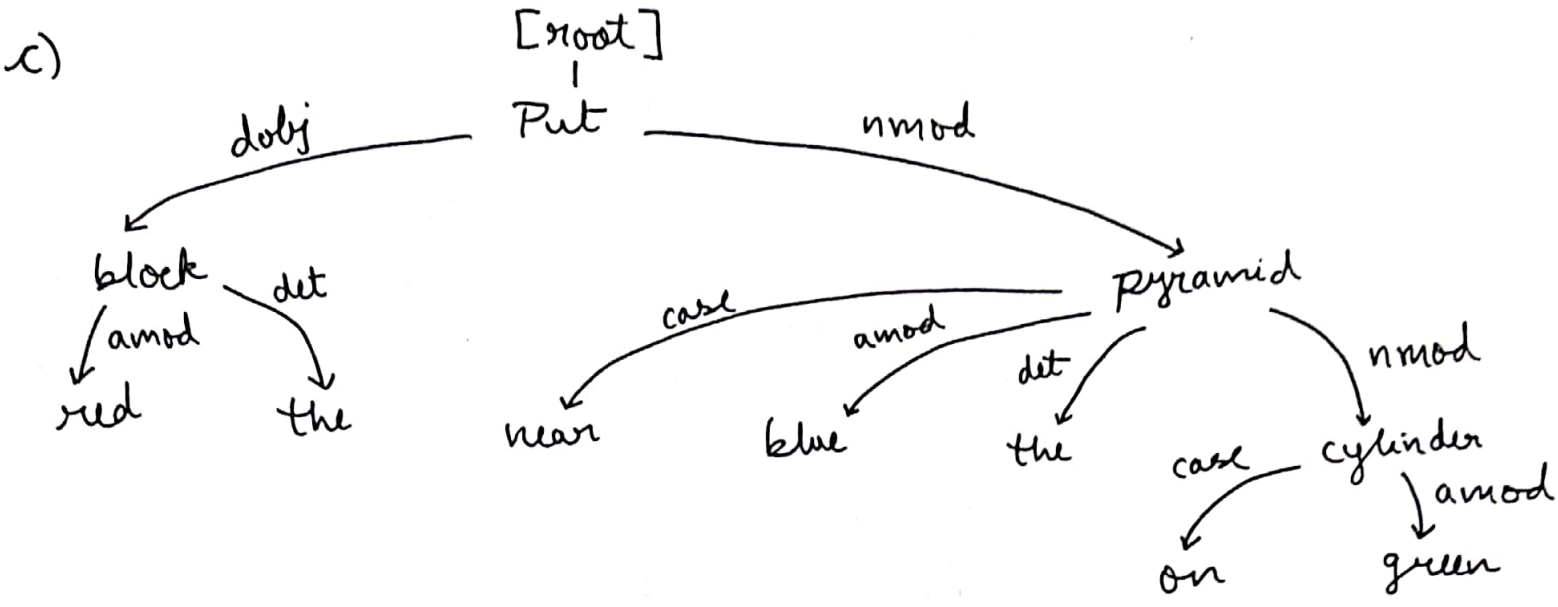 c)
[root]
Put
dobj nmod
block pyramid
det case amod det nmod
amod
red the near blue the cylinder
case amod
on green